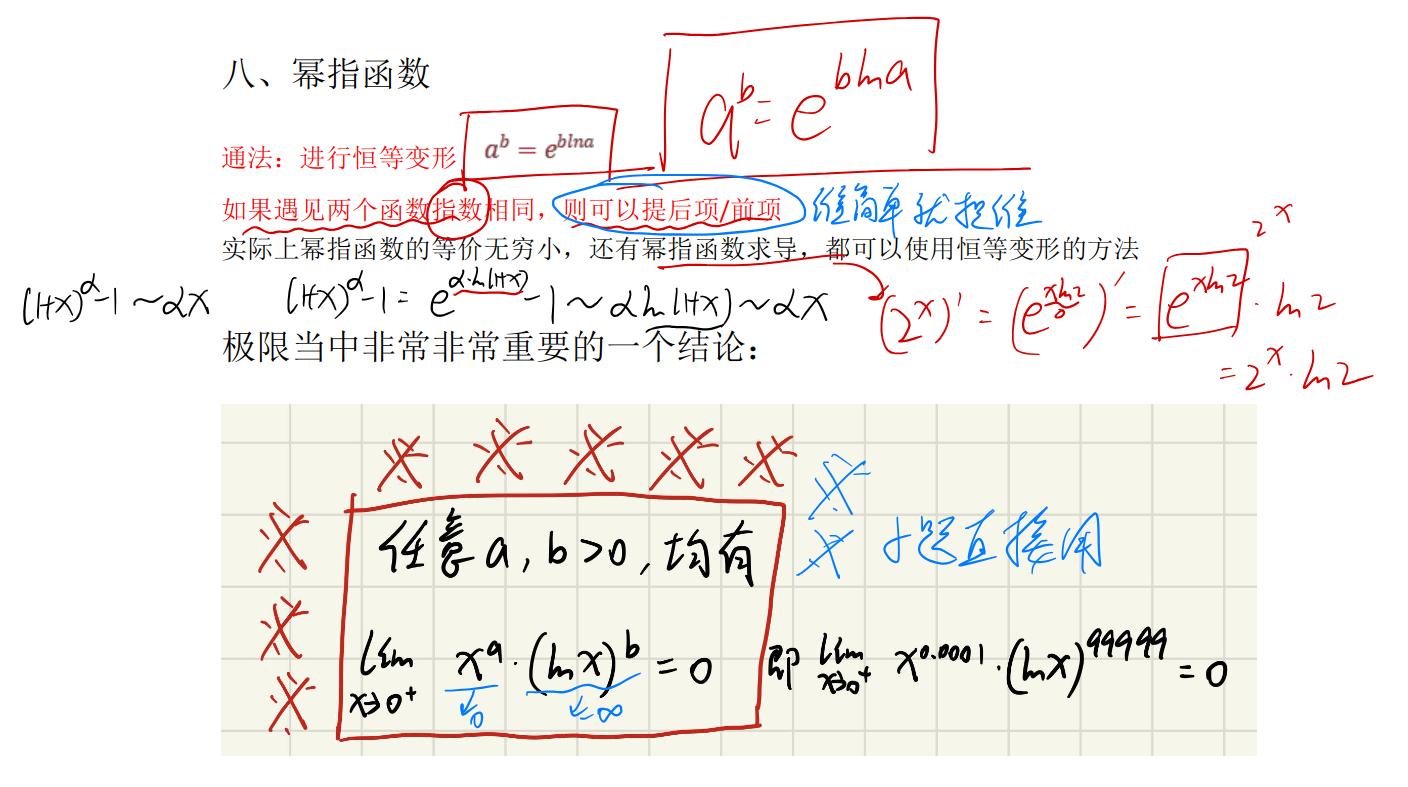 八、幂指函数
a^b = e^{blna}
通法：进行恒等变形 a^b = e^{blna}
如果遇见两个函数指数相同，则可以提后项/前项 谁简单就提谁
实际上幂指函数的等价无穷小，还有幂指函数求导，都可以使用恒等变形的方法
2^x
(1+x)^α-1 ~ αx (1+x)^α-1 = e^{α·ln(1+x)}-1 ~ αln(1+x) ~ αx (2^x)' = (e^{xln2})' = e^{xln2}·ln2
= 2^x·ln2
极限当中非常非常重要的一个结论：
任意a，b>0，均有
小题直接用
lim x→0⁺ x^a·(lnx)^b = 0 即 lim x→0⁺ x^{0.0001}·(lnx)^{99999} = 0
→0 →∞